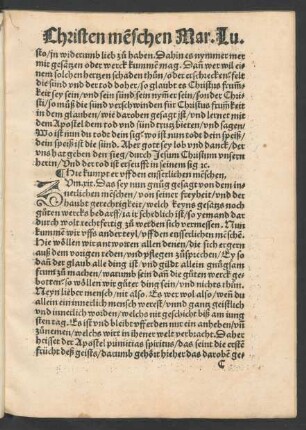 Christen mēschen Mar. Lu.
sto / jn widerumb lieb zů haben. Dahin es nymmer mer
mit gesätzen oder werck kummē mag. Dañ wer wil ei
nem solchen hertzen schaden thůn / oder erschreckē: felt
die sünd vnd der tod doher / so glaubt es Christus frūm
keit sey sein / vnd sein sünd sein nym̄er sein / sonder Chri
sti / so můß die sünd verschwinden für Christus frum̄keit
in dem glauben / wie daroben gesagt ist / vnd lernet mit
dem Apostel dem tod vnd sünd trutz bieten / vñ sagen /
Wo ist nun du todt dein sig? wo ist nun todt dein speiß /
dein speiß ist die sünd. Aber gott sey lob vnd danck / der
vns hat geben den sieg / durch Jesum Christum vnsern
herrn / Vnd der tod ist erseufft in seinem sig ꝛc.
¶ Hie kumpt er vff den eusserlichen mēschen.
Zum .xix. Das sey nun gnůg gesagt von dem in
nerlichen mēschen / von seiner freyheit / vnd der
haubt gerechtigkeit / welch keyns gesatzs noch
gůten wercks bedarff / ja it schedlich ist / so yemand dar
durch wolt rechtfertig zů werden sich vermessen. Nun
kummē wir vffs ander teyl / vff den eusserlichen mēschē.
Hie wöllen wir antworten allen denen / die sich ergern
auß dem vorigen reden / vnd pflegen zůsprechen / Ey so
dañ der glaub alle ding ist vnd gildt allein gnůgsam
frum zů machen / warumb sein dañ die gůten werck ge
botten: so wöllen wir gůter ding sein / vnd nichts thůn.
Neyn lieber mensch / nit also. Es wer wol also / weñ du
allein ein innerlich mensch werest / vñnd gantz geistlich
vnd innerlich worden / welchs nit geschicht biß am iung
sten tag. Es ist vnd bleibt vff erden nur ein anheben / vñ
zůnemen / welchs wirt in ihener welt verbracht. Daher
heisset der Apostel primitias spiritus / das seint die erstē
frücht deß geists / darumb gehört hieher das darobē ge-
C